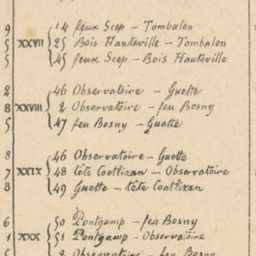 9 14 feux Scep – Tombalon
5 XXVII 25 Bois Hauteville – Tombalon
5 45 feux Scep – Bois Hauteville
2 46 Observatoire – Guette
8 XXVIII 2 Observatoire – feu Bosny
5 47 feu Bosny – Guette
8 46 Observatoire – Guette
7 XXIX 48 Côte Coetlizan – Observatoire
8 49 Guette – Côte Coetlizan
6 50 Pontgamp – feu Bosny
1 XXX 51 Pontgamp – Observatoire
5 2 Observatoire – feu Bosny